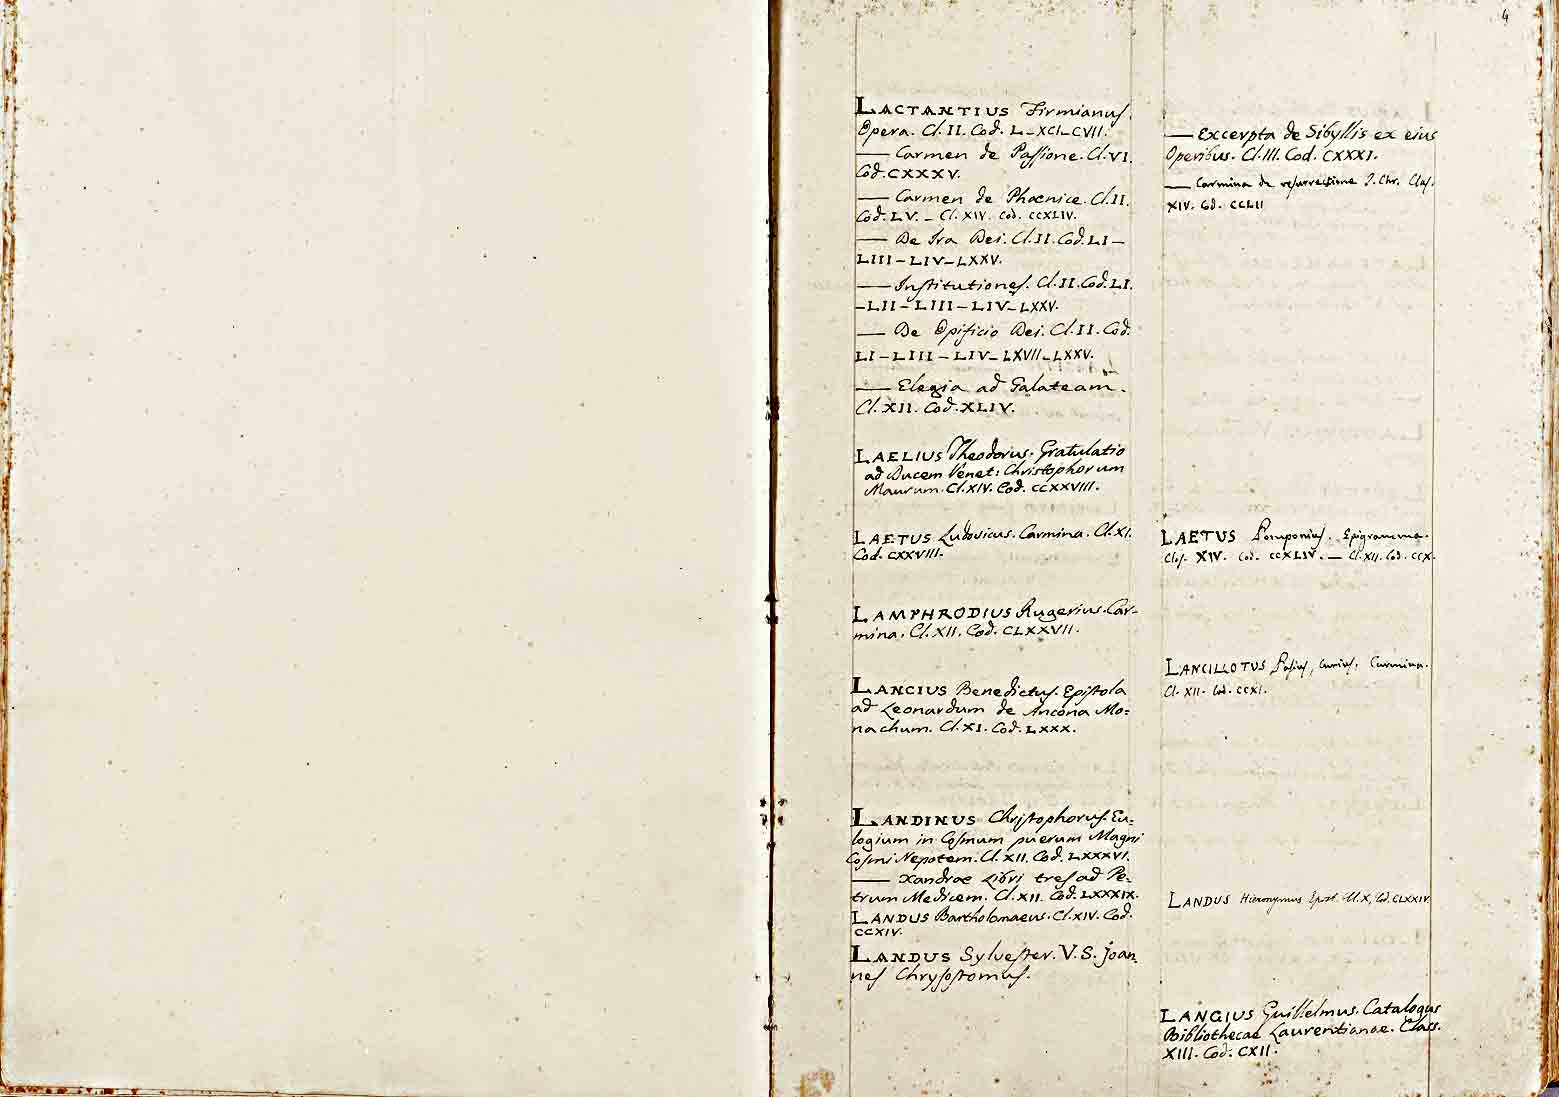 4
LACTANTIUS Firmianus.
Opera. Cl. II. Cod. L-XCI-CVII.
— Carmen de Passione. Cl. VI.
Cod. CXXXV.
— Carmen de Phœnice. Cl. II.
Cod. LV. - Cl. XIV. Cod. CCXLIV.
— De Ira Dei. Cl. II. Cod. LI-
LIII-LIV-LXXV.
— Institutiones. Cl. II. Cod. LI.
-LII-LIII-LIV-LXXV.
— De Opificio Dei. Cl. II. Cod.
LI-LIII-LIV-LXVII-LXXV.
— Elegia ad Galateam.
Cl. XII. Cod. XLIV.
LAELIUS Theodorus. Gratulatio
ad Ducem Venet: Christophorum
Maurum. Cl. XIV. Cod. CCXXVIII.
LAETUS Ludovicus. Carmina. Cl. XI.
Cod. CXXVIII.
LAMPHRODIUS Rugerius. Car-
mina. Cl. XII. Cod. CLXXVII.
LANCIUS Benedictus. Epistola
ad Leonardum de Ancona Mo=
nachum. Cl. XI. Cod. LXXX.
LANDINUS Christophorus. Eu=
logium in Cosmum puerum Magni
Cosmi Nepotem. Cl. XII. Cod. LXXXVI.
— Xandrae Libri tres ad Pe=
trum Medicem. Cl. XII. Cod. LXXXIX.
LANDUS Bartholomaeus. Cl. XIV. Cod.
CCXIV.
LANDUS Sylvester. V. S. Joan=
nes Chrysostomus.
— Excerpta de Sibyllis ex eius
Operibus. Cl. III. Cod. CXXXI.
— Carmina de resurrectione J. Chr. Clas.
XIV. Cod. CCLII
LAETUS Pomponius. Epigramma.
Clas. XIV. Cod. CCXLIV. — Cl. XII. Cod. CCX.
LANCILLOTUS Pasius, Carmina.
Cl. XII. Cod. CCXI.
LANDUS Hieronymus Epist. Cl. X, Cod. CLXXIV
LANGIUS Guillelmus. Catalogus
Bibliothecae Laurentianae. Class.
XIII. Cod. CXII.